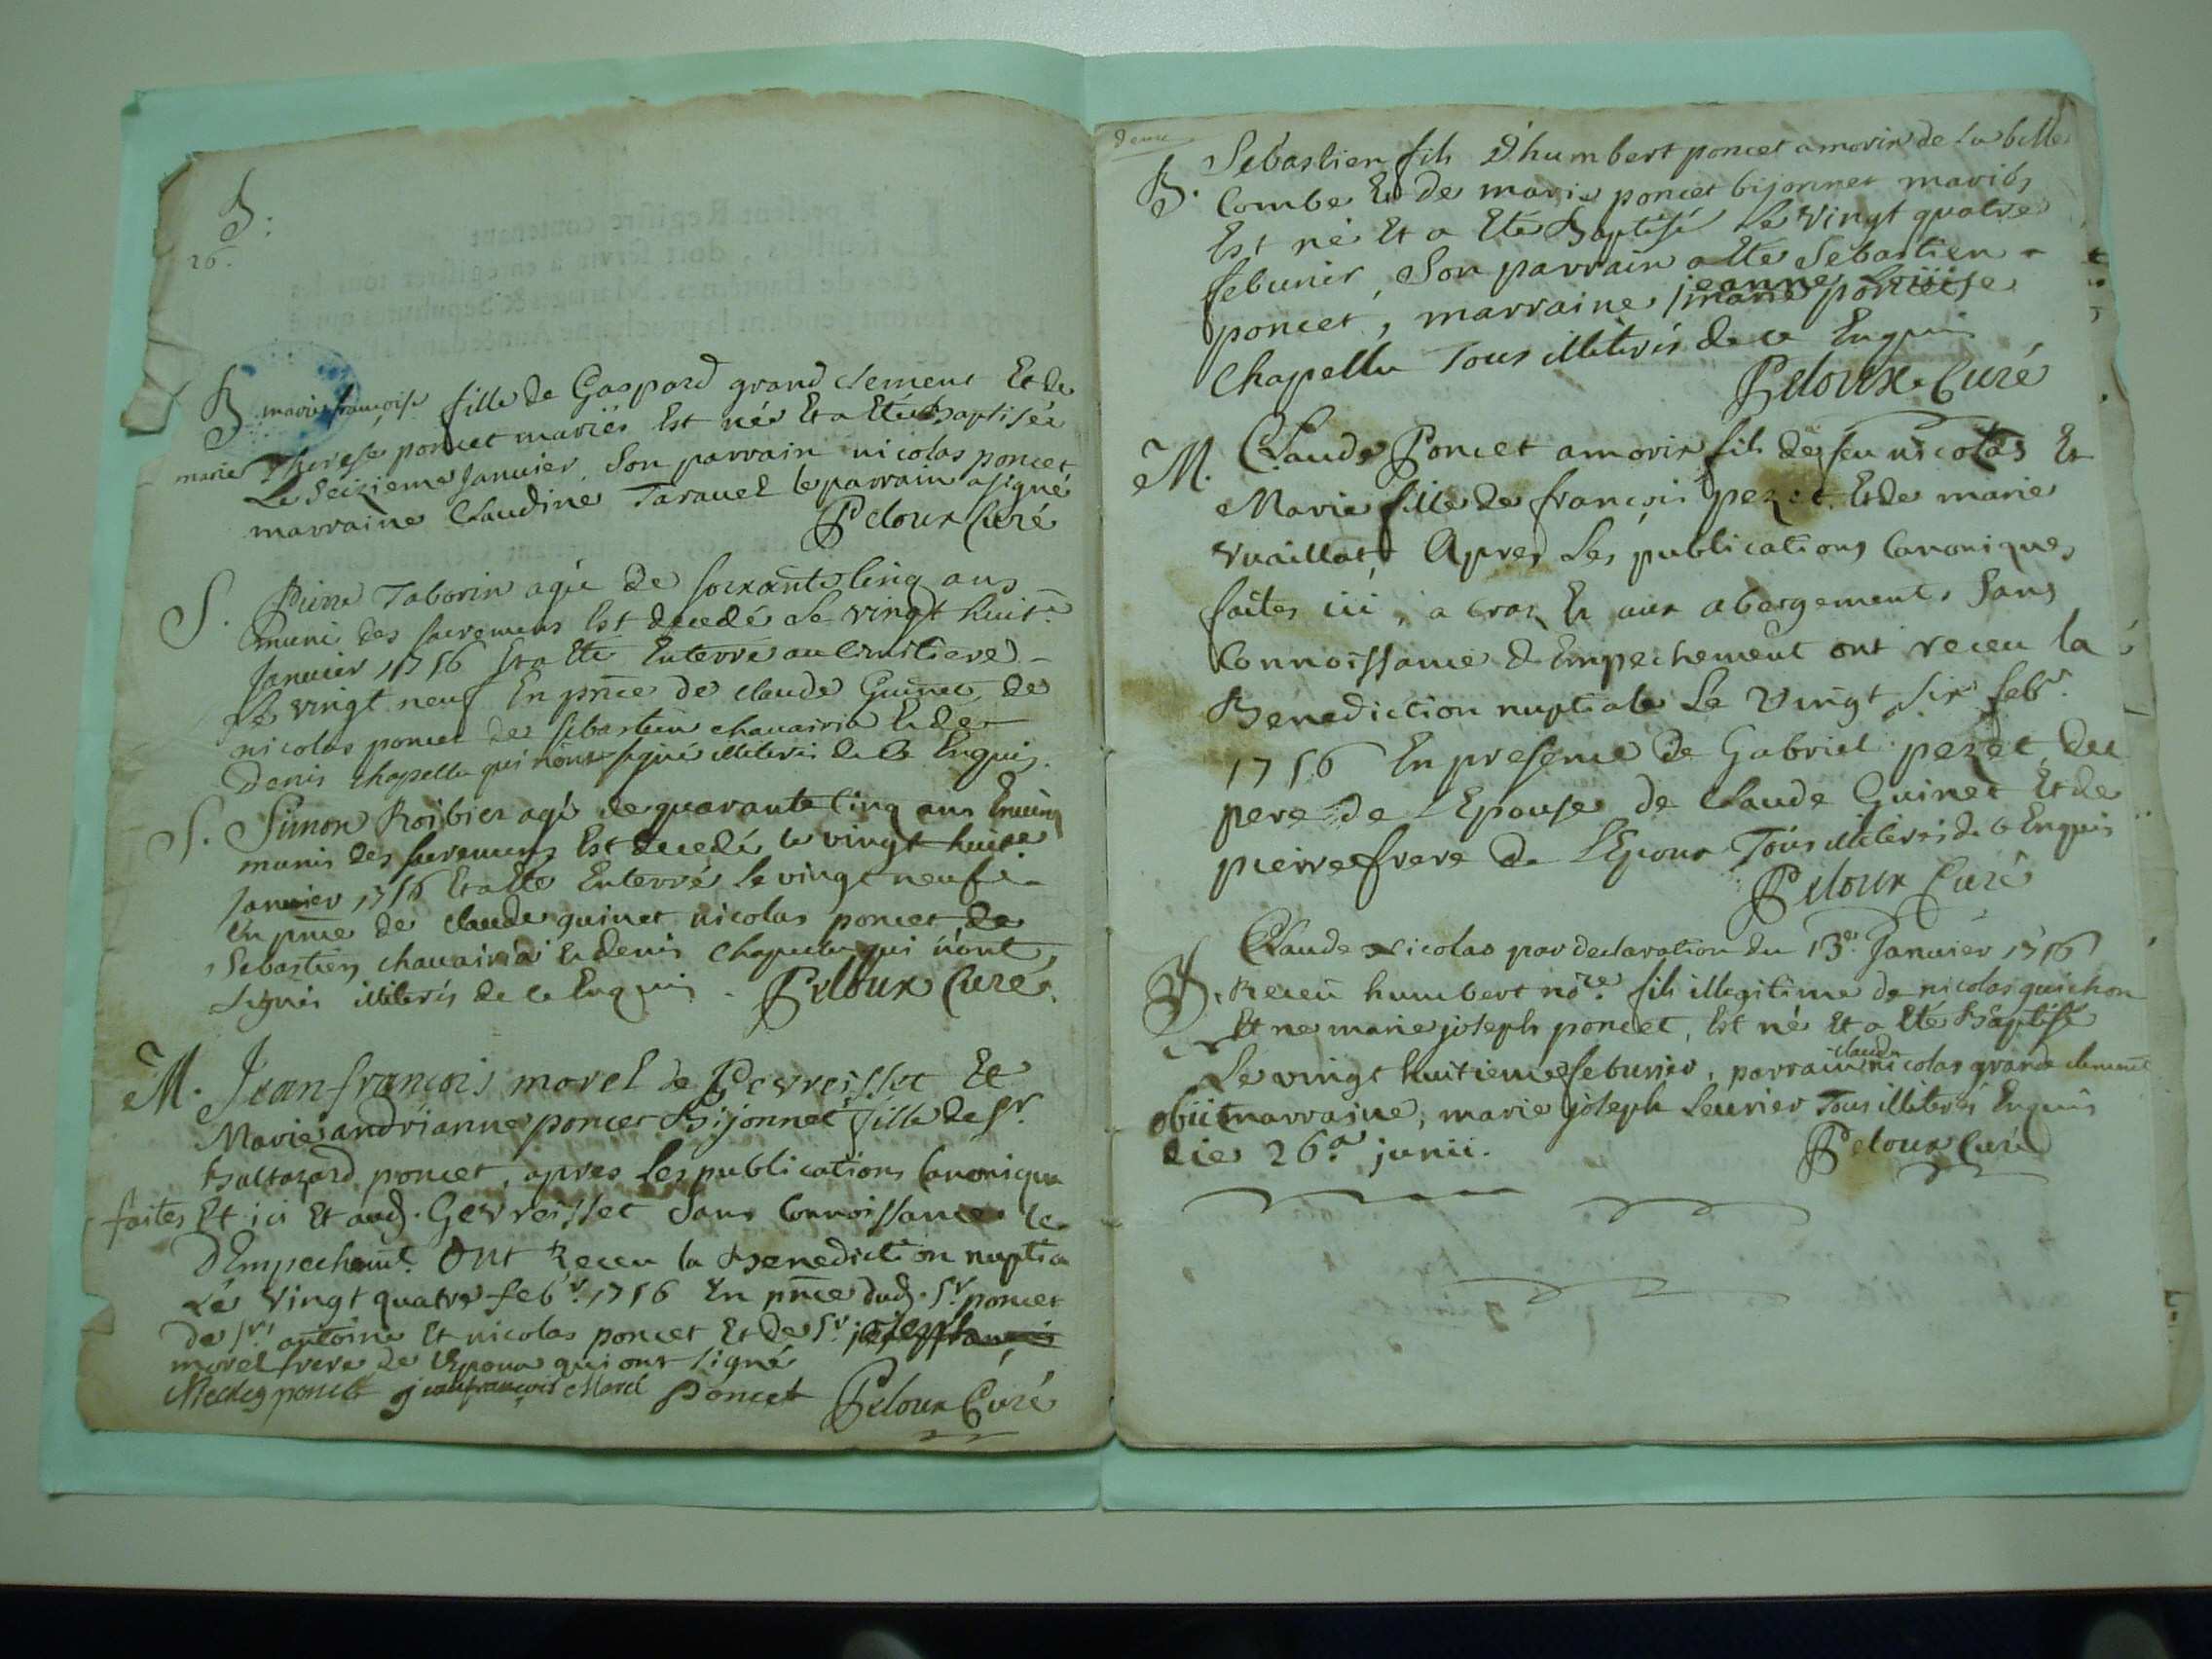 B.
26.
B. marie françoise fille de Gaspard grand clement Et de
marie Therese poncet mariés Est née Et a Eté Baptisée
Le Seizieme Janvier Son parrain nicolas poncet
marraine Claudine Taravel le parrain a signé
Peloux Curé
S. Pierre Taborin agé de soixante cinq ans
muni des sacremens Est decedé Le vingt huit.e
Janvier 1756 Et a Eté Enterré au Cimitiere
Le vingt neuf En pnce de claude Guinet, de
nicolas poncet de sebastien chavairia Et de
Denis chapellu qui n'ont signé illiterés de ce Enquis.
S. Simon Roibier agé de quarante cinq ans
munis des sacremens Est decedé le vingt huite
Janvier 1756 Et a Eté Enterré le vingt neuf
En pnce de claude guinet nicolas poncet de
Sebastien chavairia Et denis Chapellu qui n'ont
signés illiterés de ce Enquis. Peloux Curé.
M. Jean françois morel de Gevreisset Et
Marie andrianne poncet Bijonnet fille de Sr.
Baltazard poncet, apres Les publications Canoniqu
faites Et ici Et aud. Gevreisset sans Connoissance
D'Empechemt. Ont Receu la Benediction nuptia le
Le Vingt quatre febr. 1756 En pnce dud. Sr. poncet
de Srs. antoine Et nicolas poncet Et de Sr. joseph
morel frere de l'Epoux qui ont signé
poncet jeanfrançois Morel Poncet Peloux Curé
deux
B. Sebastien fils D'humbert poncet amorin de La belle
Combe Et de marie poncet bijonnet mariés
Est né Et a Eté Baptisé Le Vingt quatre
febvrier, Son parrain a Eté Sebastien
poncet, marraine jeanne Louise
Chapellu Tous illiterés de ce Enquis
Peloux Curé
M. Claude Poncet amorin fils de feu nicolas Et
Marie fille de françois perret Et de marie
Vuaillat, Apres Les publications Canoniques
faites ici, a cras Et aux abergements Sans
Connoissance d'Empechement ont receu la
Benediction nuptiale Le Vingt six febr.
1756 En presence de Gabriel perret du
pere de L'Epouse de Claude Guinet Et de
pierre frere de L'Epoux Tous illiterés de ce Enquis
Peloux Curé
Claude Nicolas par declaration du 13e. Janvier 1756
B. Receu humbert nore. fils illegitime de nicolas guichon
Et ne marie joseph poncet, Est né Et a Eté Baptisé
Le vingt huitieme febvrier, parrain claude nicolas grand clement
obiit marraine, marie joseph Levrier Tous illiterés Enquis
die 26.a junii. Peloux Curé